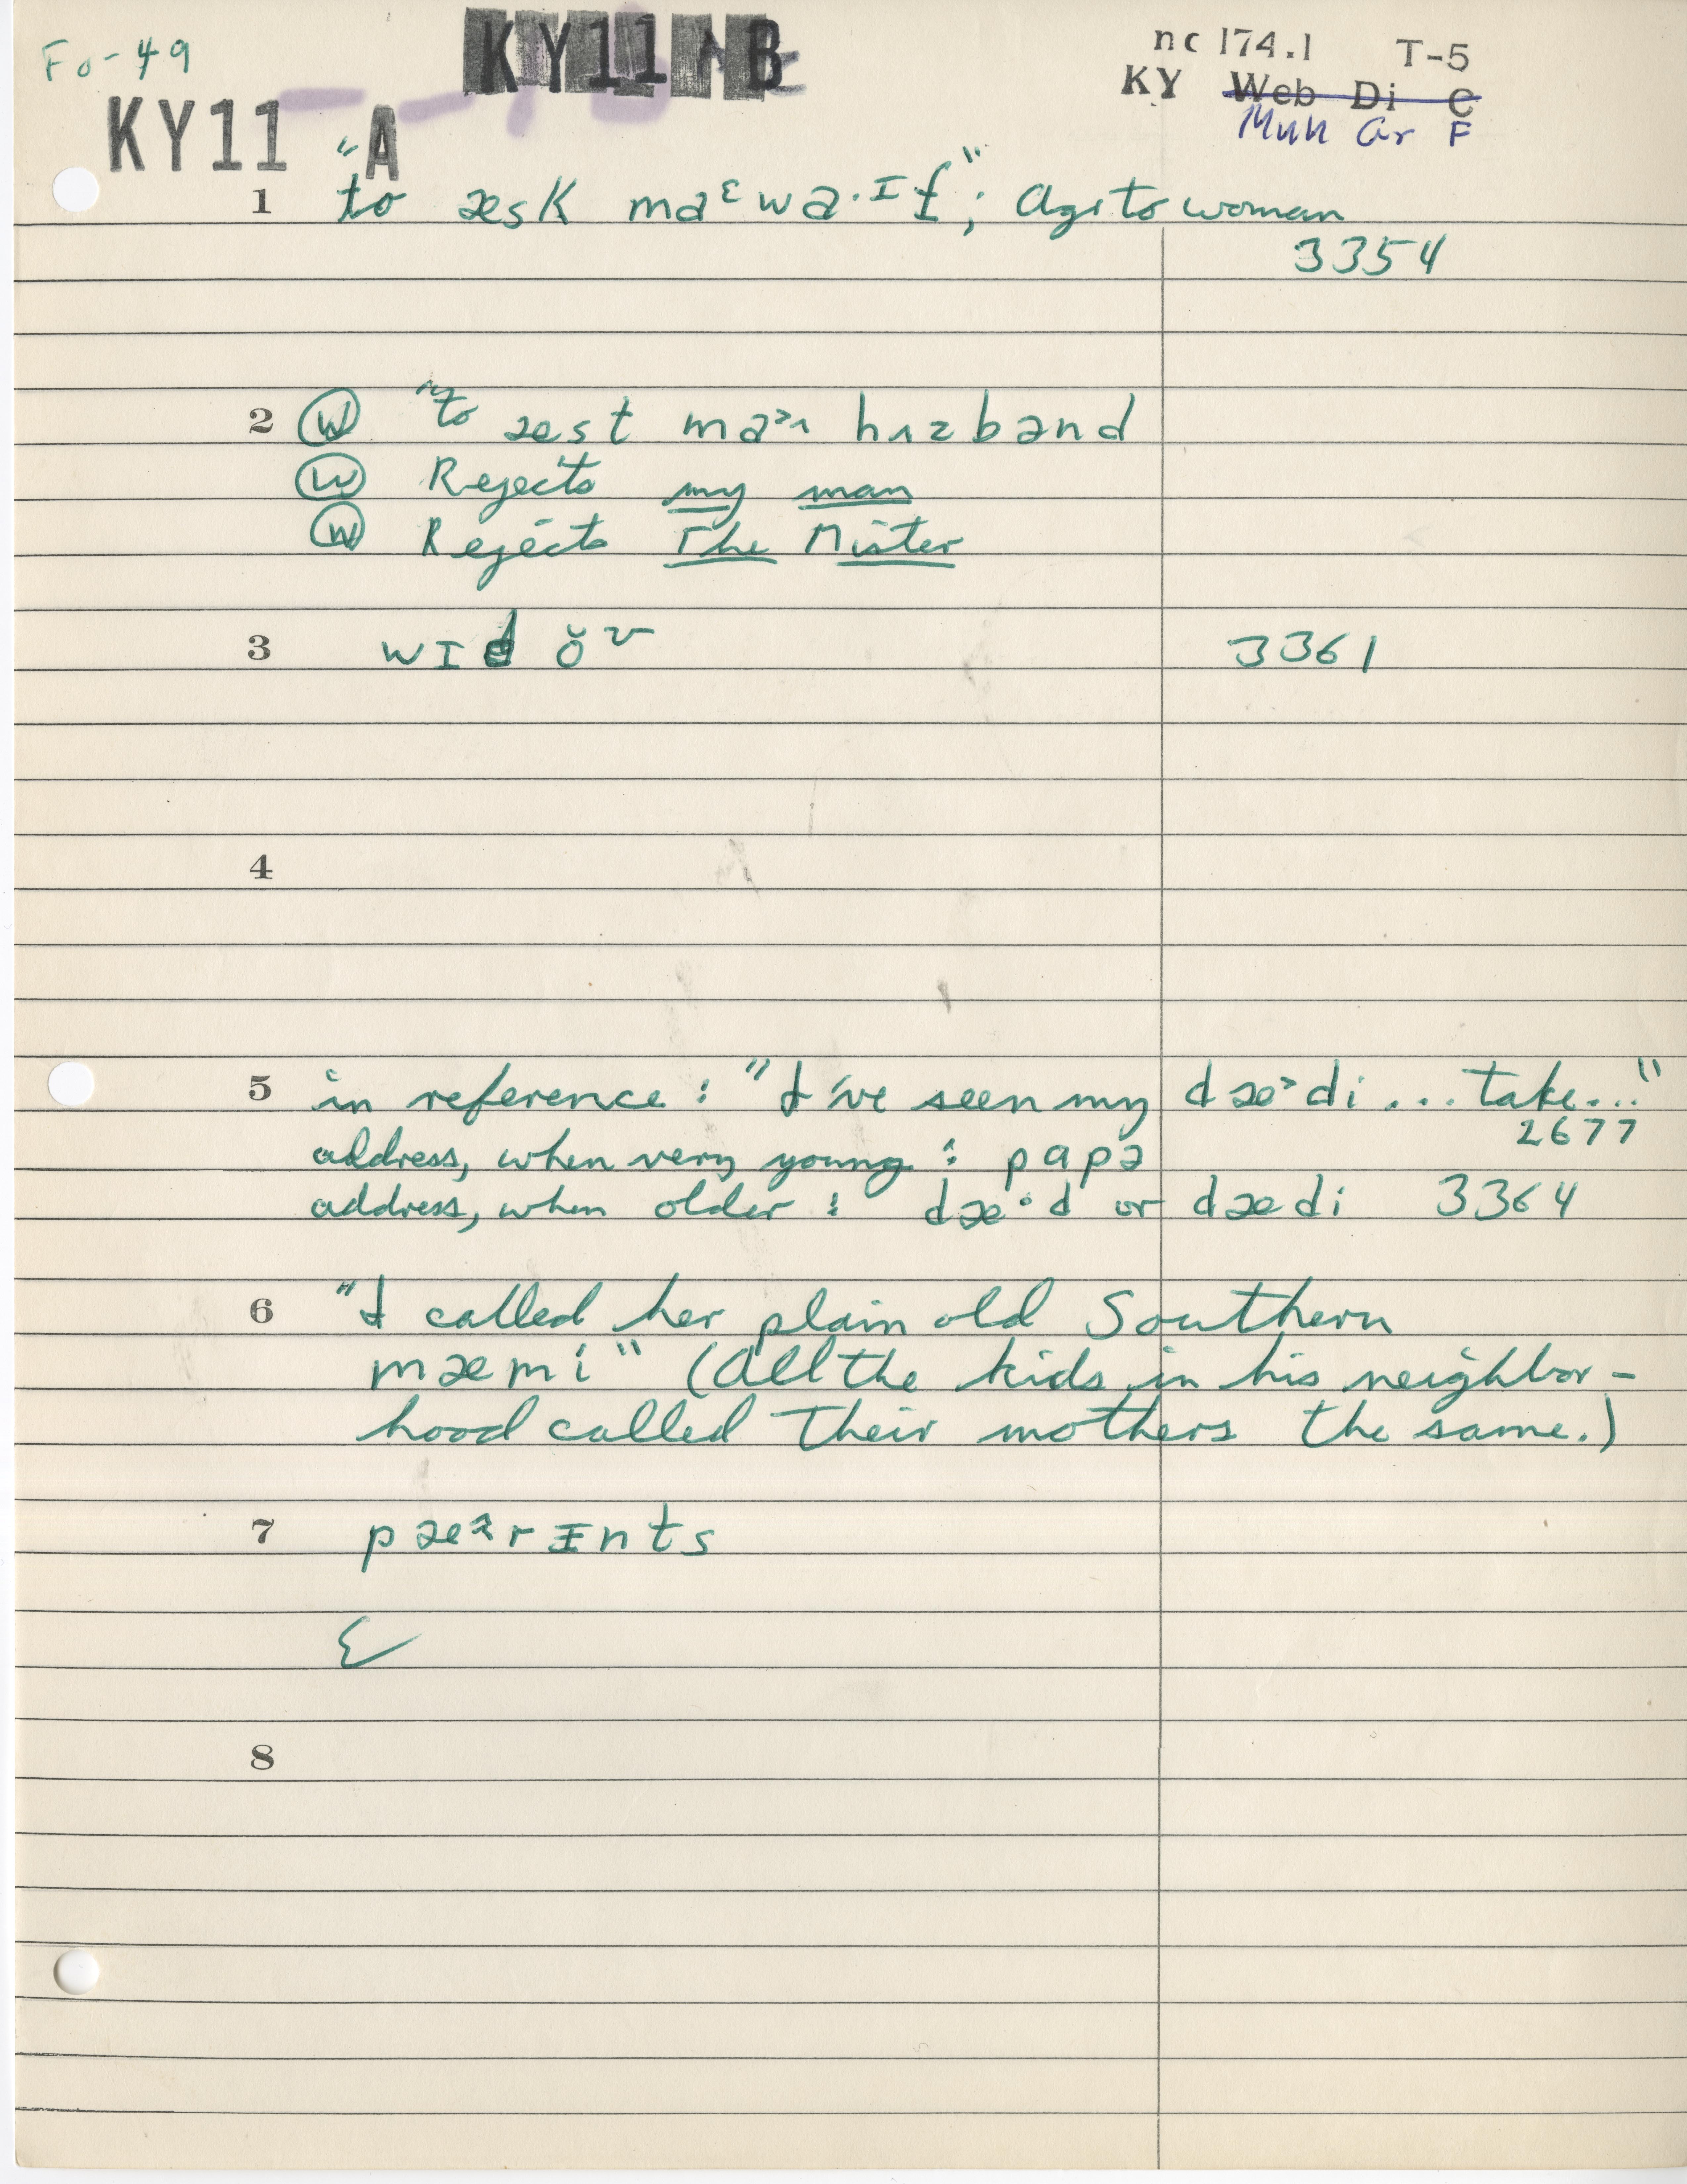 Fo-49
KY11 A B
nc 174.1 T-5
KY Web Di C
KY11 A
Muh Gr F
1 "to æsk maᵋ wa·ɪf"; agrts woman
3354
2 Ⓦ "to æst ma˃ɪ hʌzbənd
Ⓦ Rejects my man
Ⓦ Rejects The Mister
3 wɪd 3361
4
5 in reference: "I've seen my dæ˃di ... take..."
2677
address, when very young: papə
address, when older: dæ·d or dædi 3364
6 "I called her plain old Southern
mæmi" (All the kids in his neighbor-
hood called their mothers the same.)
7 pæᵊrɪnts
8